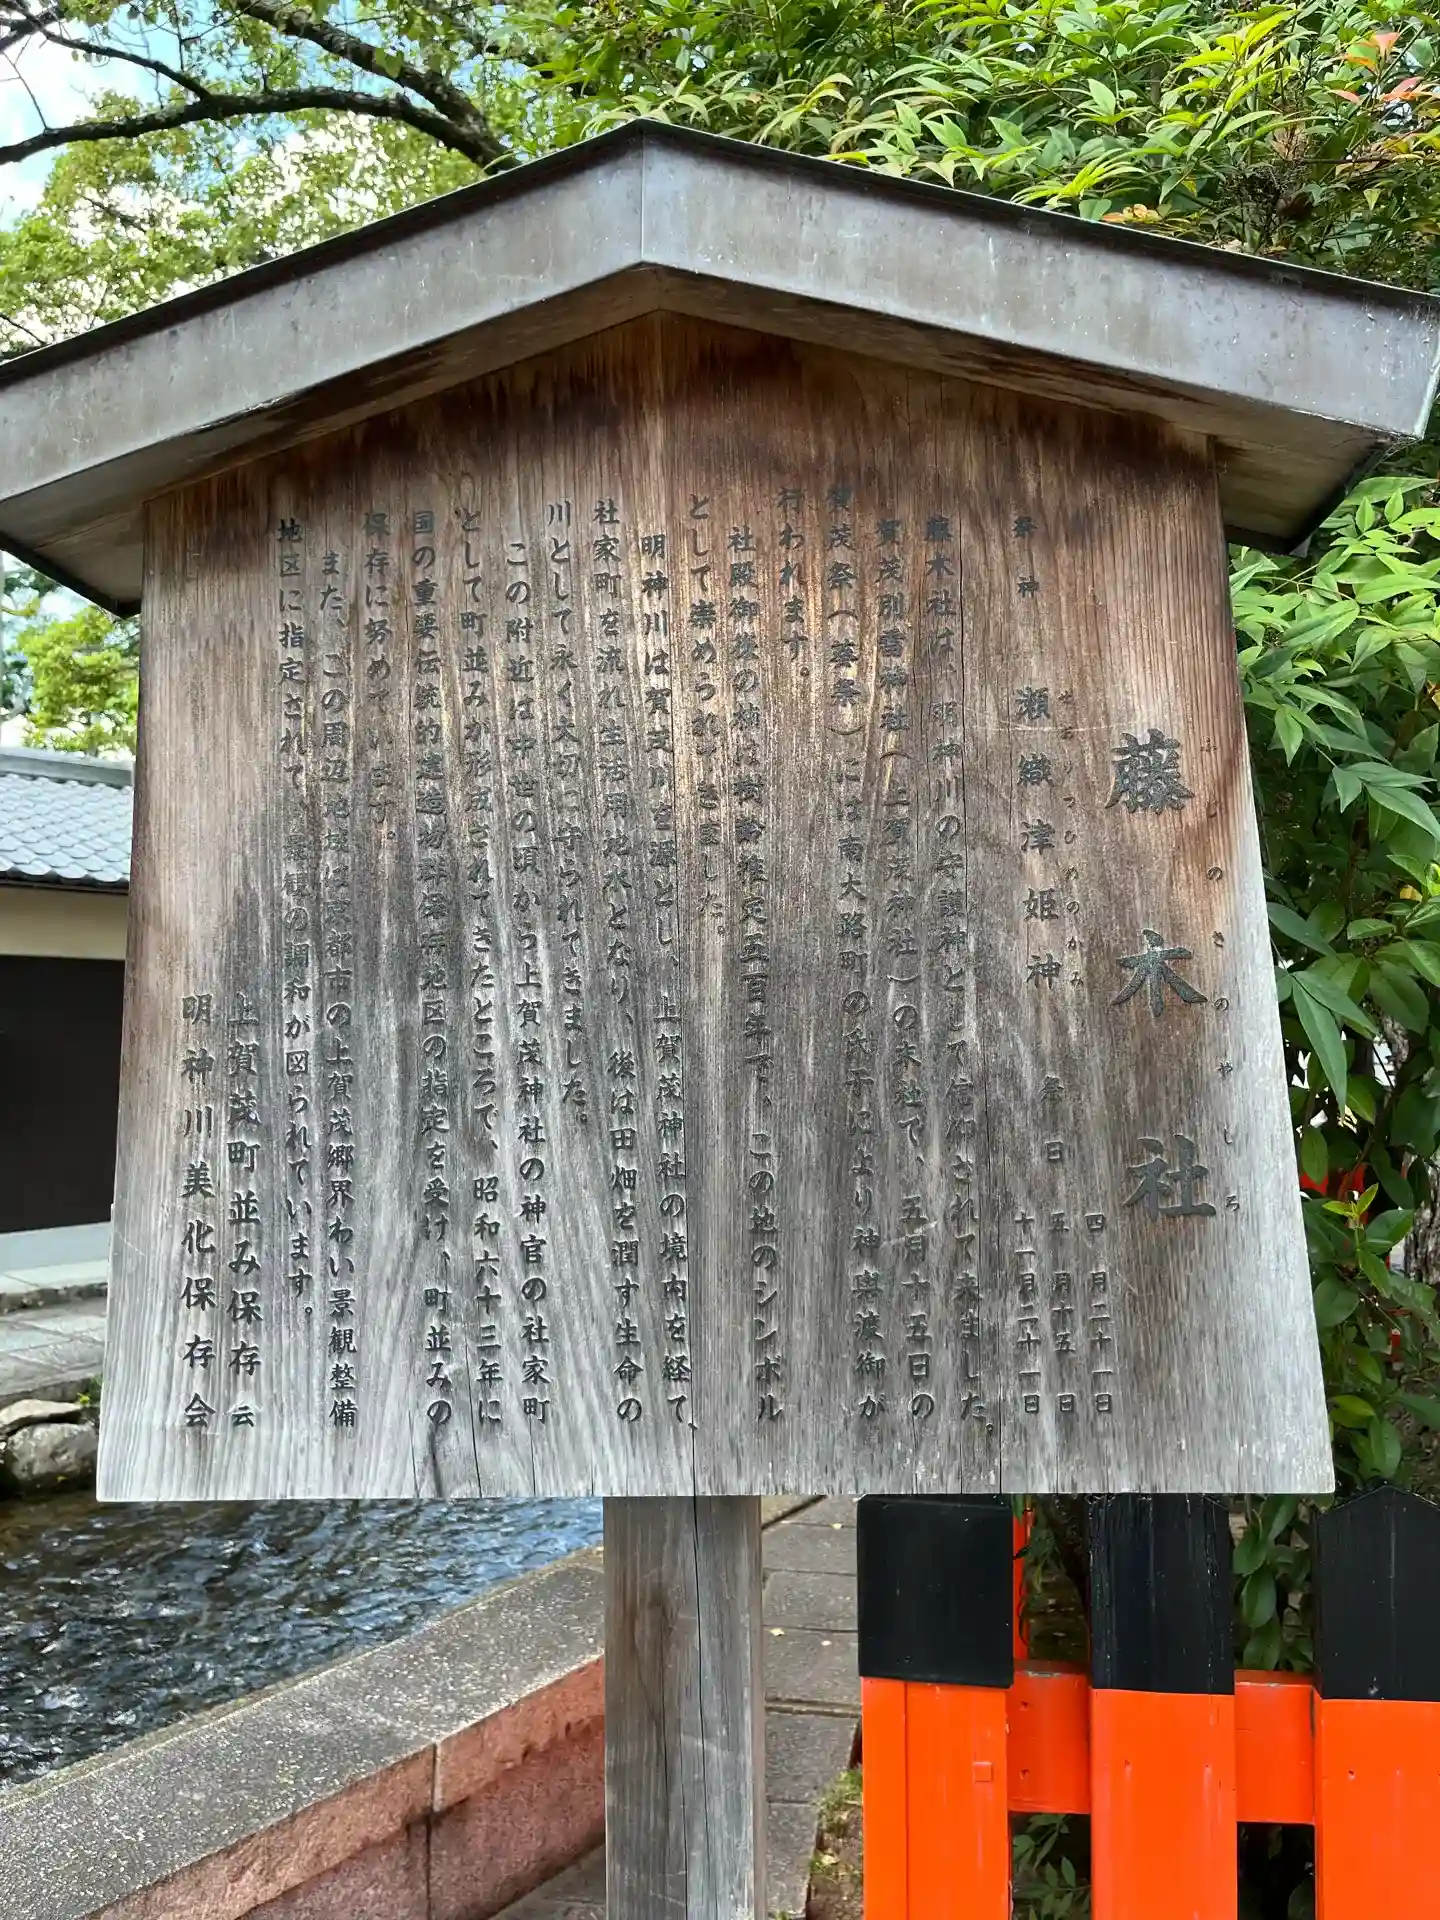 藤木社
ふじのきのやしろ
祭神 瀬織津姫神 祭日
せおりつひめのかみ
四月二十一日
五月十五日
十一月二十一日
藤木社は、明神川の守護神として信仰されて来ました。
賀茂別雷神社(上賀茂神社)の末社で、五月十五日の
賀茂祭(葵祭)には南大路町の氏子により神輿渡御が
行われます。
社殿御後の楠は樹齢推定五百年で、この地のシンボル
として崇めうれてきました。
明神川は賀茂川を源とし、上賀茂神社の境内を経て、
社家町を流れ生活用地水となり、後は田畑を潤す生命の
川として永く大切に守られてきました。
この附近は中世の頃から上賀茂神社の神官の社家町
として町並みが形成されてきたところで、昭和六十三年に
国の重要伝統的建造物群保存地区の指定を受け、町並みの
保存に努めています。
また、この周辺地域は京都市の上賀茂郷界わい景観整備
地区に指定されて、景観の調和が図られています。
上賀茂町並み保存会
明神川美化保存会